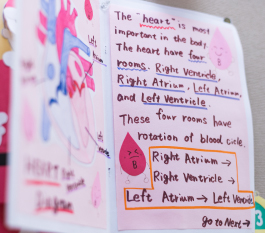 HEART
The "heart" is most
important in the body.
The heart have four
rooms. Right Ventricle,
Right Atrium, Left Atrium,
and Left Ventricle.
These four rooms have
rotation of blood cicle.
Right Atrium →
Right Ventricle →
Left Atrium → Left Ventricle
go to Next →